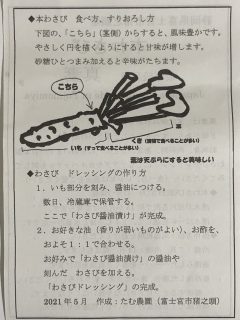 ◆本わさび　食べ方、すりおろし方
下図の、「こちら」(茎側)からすると、風味豊かです。
やさしく円を描くようにすると甘味が増します。
砂糖ひとつまみ加えると辛味がたちます。
こちら
葉
くき(醤油で食べることが多い)
いも(すって食べることが多い)
葉は天ぷらにすると美味しい
◆わさび　ドレッシングの作り方
1．いも部分を刻み、醤油につける。
数日、冷蔵庫で保管する。
ここで「わさび醤油漬け」が完成。
2．お好きな油(香りが弱いものがよい)、お酢を、
およそ1：1で合わせる。
お好みで「わさび醤油漬け」の醤油や
刻んだ　わさびを加える。
「わさびドレッシング」の完成。
2021年5月　作成：たむ農園(富士宮市猪之頭)